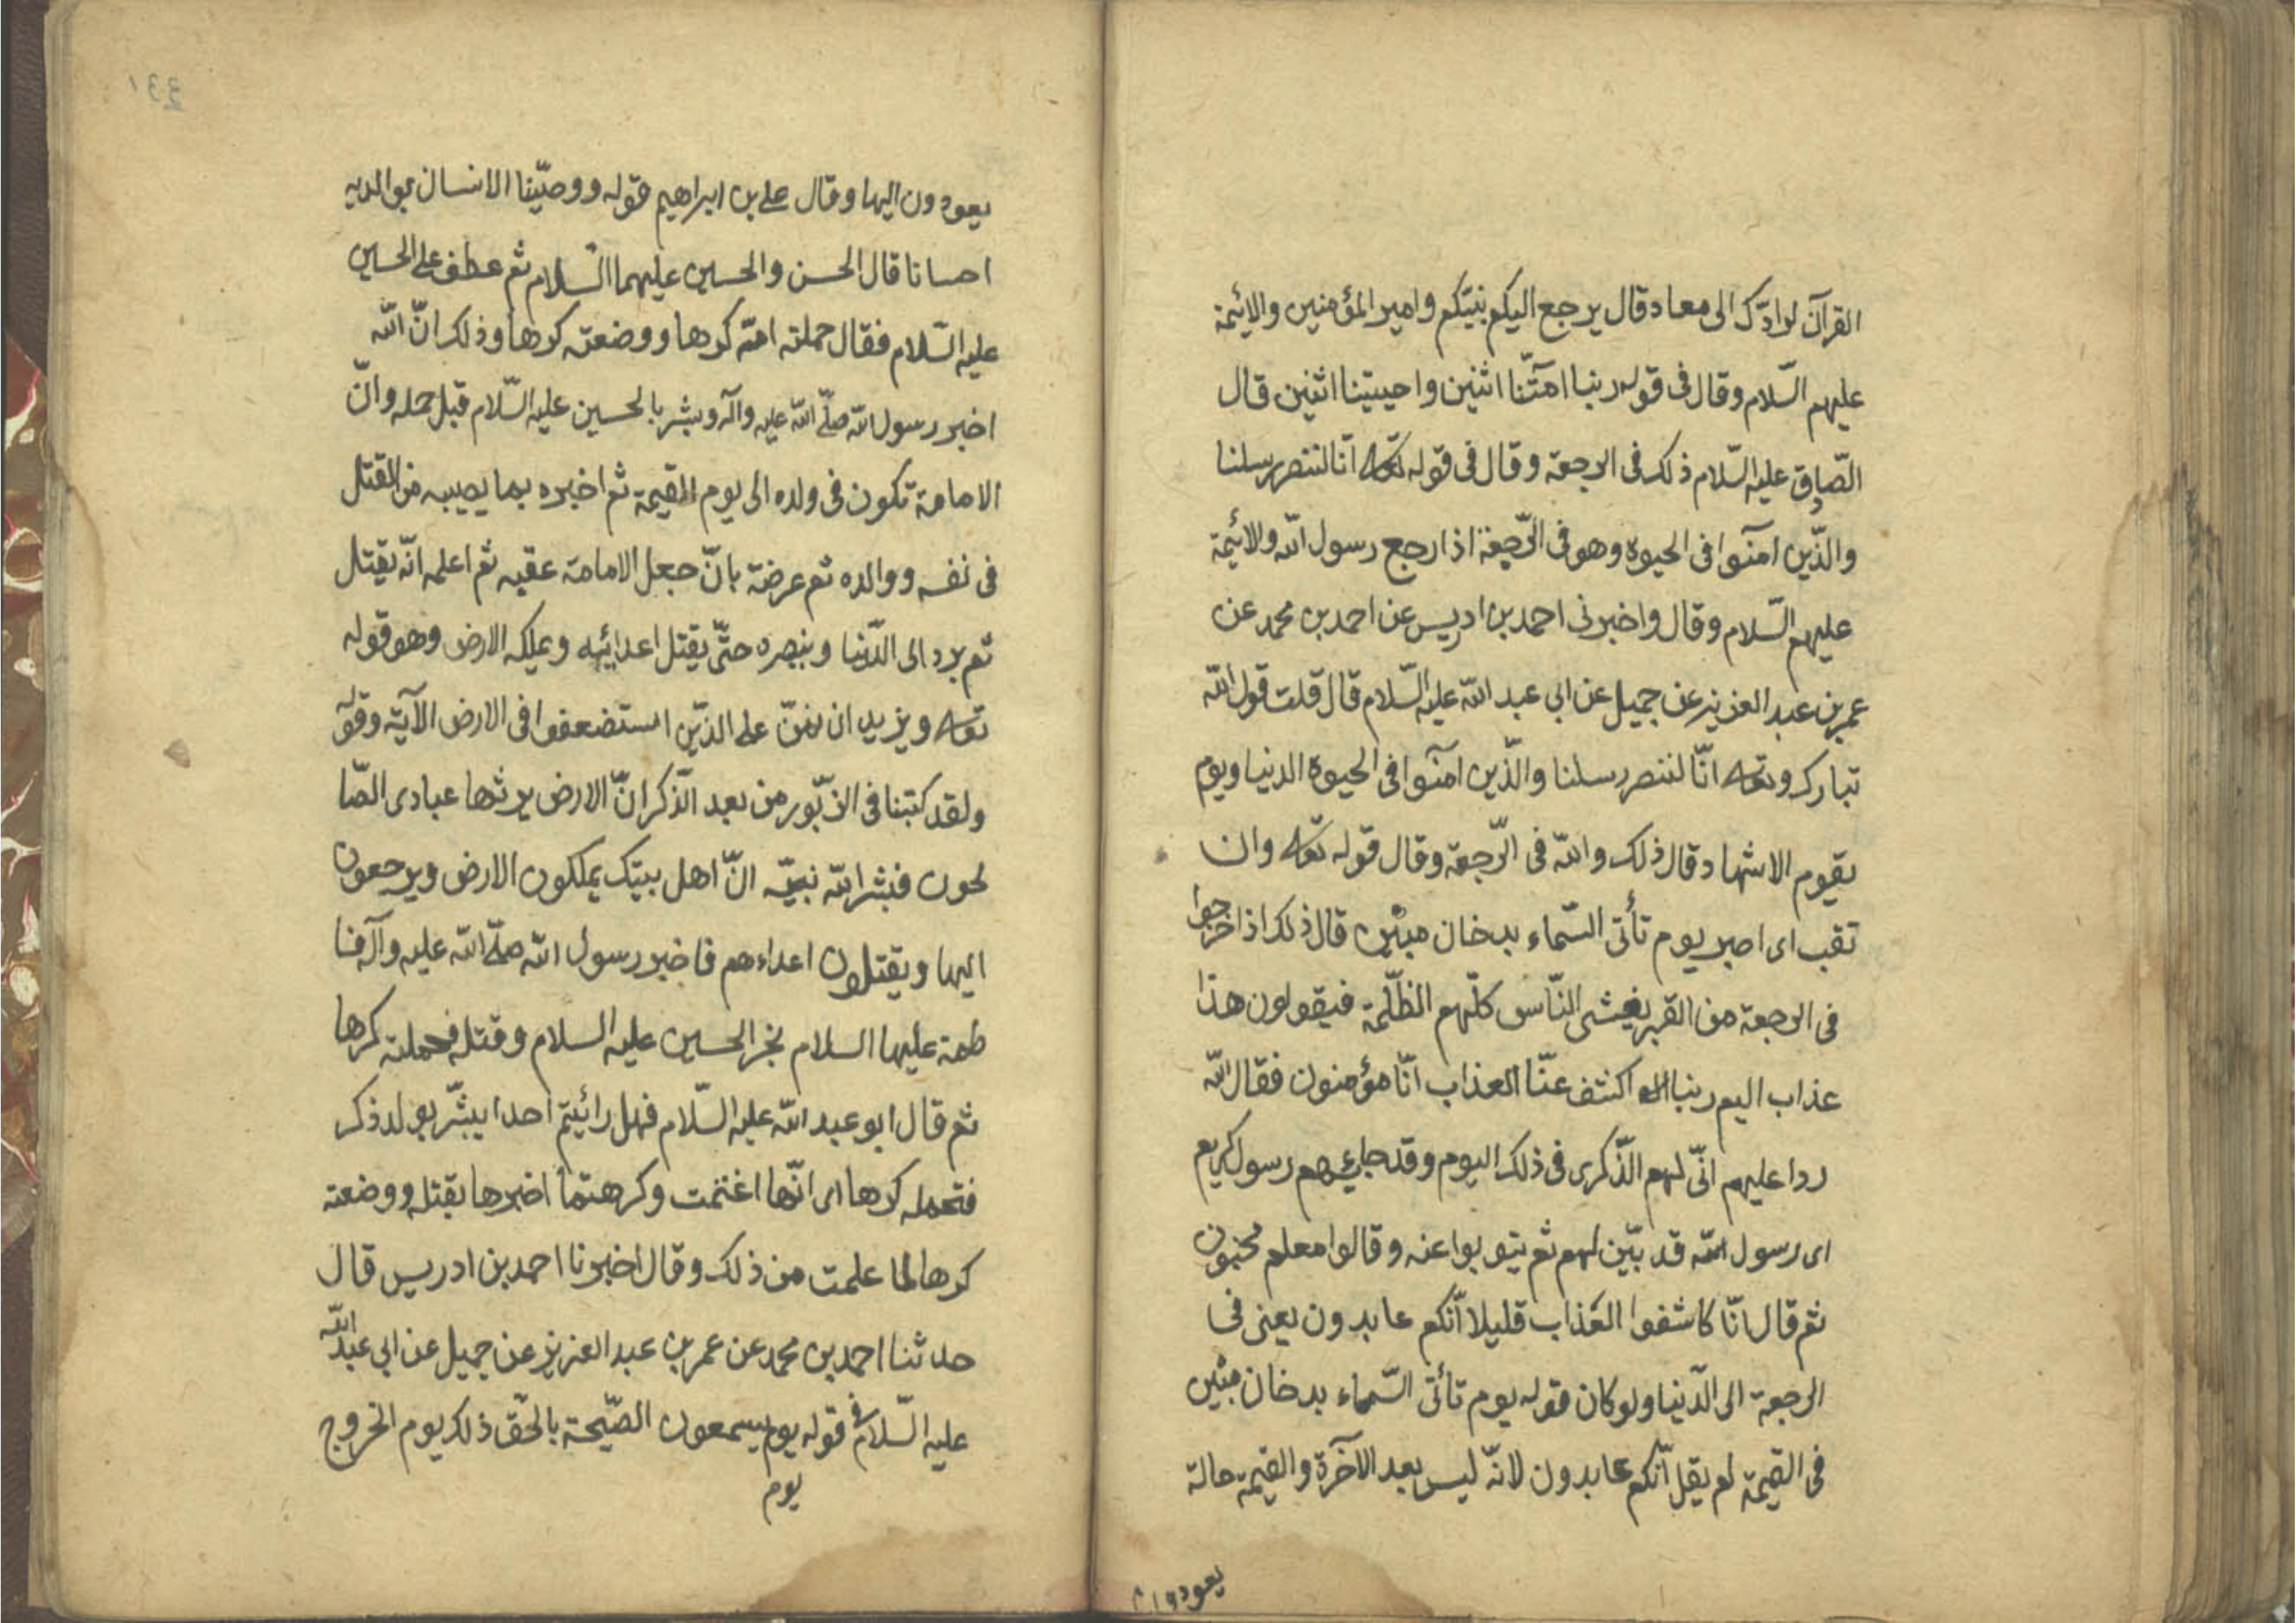 القرآن لرادّك الى معاد قال يرجع اليكم نبيّكم وامير المؤمنين والائمة
عليهم السّلام وقال فى قوله ربنا امتّنا اثنين واحييتنا اثنين قال
الصّادق عليه السّلام ذلك فى الرجعة وقال فى قوله تعه انّا لننصر رسلنا
والذّين امنوا فى الحيوة وهو فى الرّجعة اذا رجع رسول الله والائمة
عليهم السّلام وقال واخبرنى احمد بن ادريس عن احمد بن محمد عن
عمر بن عبد العزيز عن جميل عن ابى عبد الله عليه السّلام قال قلت قول الله
تبارك وتعه انّا لننصر رسلنا والذّين امنوا فى الحيوة الدنيا ويوم
يقوم الاشهاد قال ذلك والله فى الرّجعة وقال قوله تعه وان
تقب اى اصبر يوم تأتى السّماء بدخان مبين قال ذلك اذا خرجوا
فى الرجعة من القبر يغشى النّاس كلّهم الظّلمة فيقولون هذا
عذاب اليم ربنا اكشف عنّا العذاب انّا مؤمنون فقال الله
ردا عليهم انّى لهم الذّكرى فى ذلك اليوم وقد جاءهم رسول كريم
اى رسول الله قد بيّن لهم ثم يتوبوا عنه وقالوا معلم مجنون
ثم قال انّا كاشفوا العذاب قليلا انّكم عابدون يعنى فى
الرجعة الى الدّنيا ولو كان قوله يوم تأتى السّماء بدخان مبين
فى القيمة لم يقل انّكم عابدون لانّه ليس بعد الآخرة والقيمة حالة
يعودون
331
يعودون اليها وقال على بن ابراهيم قوله ووصّينا الانسان بوالديه
احسانا قال الحسن والحسين عليهما السّلام ثم عطف على الحسين
عليه السّلام فقال حملته امّه كرها ووضعته كرها وذلك انّ الله
اخبر رسول الله صلّى الله عليه وآله وبشر بالحسين عليه السّلام قبل حمله وانّ
الامامة تكون فى ولده الى يوم القيمة ثم اخبره بما يصيبه من القتل
فى نفسه ووالده ثم عرضة بانّ جعل الامامة عقبه ثم اعلمه انّه يقتل
ثم يرد الى الدّنيا وينصره حتّى يقتل اعدائه ويملكه الارض وهو قوله
تعه ونريد ان نمنّ على الذيّن استضعفوا فى الارض الآية وقوله
ولقد كتبنا فى الزّبور من بعد الذّكر انّ الارض يرثها عبادى الصّا
لحون فبشر الله نبيّه انّ اهل بيتك يملكون الارض ويرجعون
اليها ويقتلون اعداءهم فاخبر رسول الله صلّى الله عليه وآله فا
طمة عليها السلام بخبر الحسين عليه السلام وقتله فحملته كرها
ثم قال ابو عبد الله عليه السّلام فهل رائيتم احدا يبشّر بولد ذكر
فتحمله كرها اى انّها اغتمت وكرهت لما اخبرها بقتله ووضعته
كرها لما علمت من ذلك وقال اخبرنا احمد بن ادريس قال
حدثنا احمد بن محمد عن عمر بن عبد العزيز عن جميل عن ابى عبد الله
عليه السّلام فى قوله يوم يسمعون الصّيحة بالحق ذلك يوم الخروج
يوم